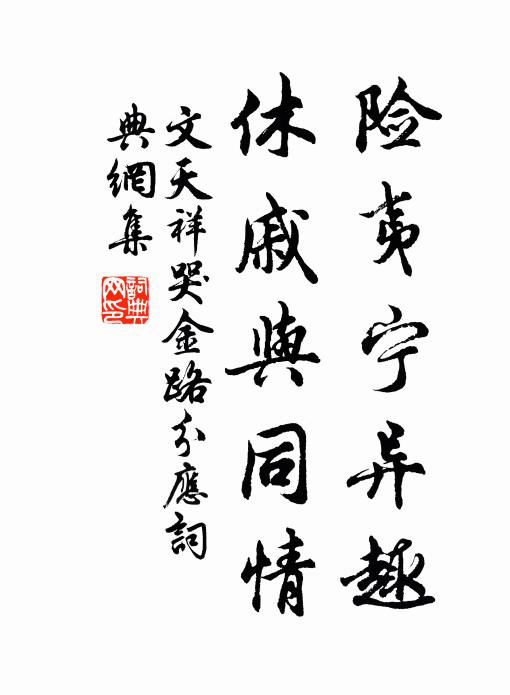 险夷宁异趣
休戚與同情
文天祥哭金路分應詞
典網集
詞典網印